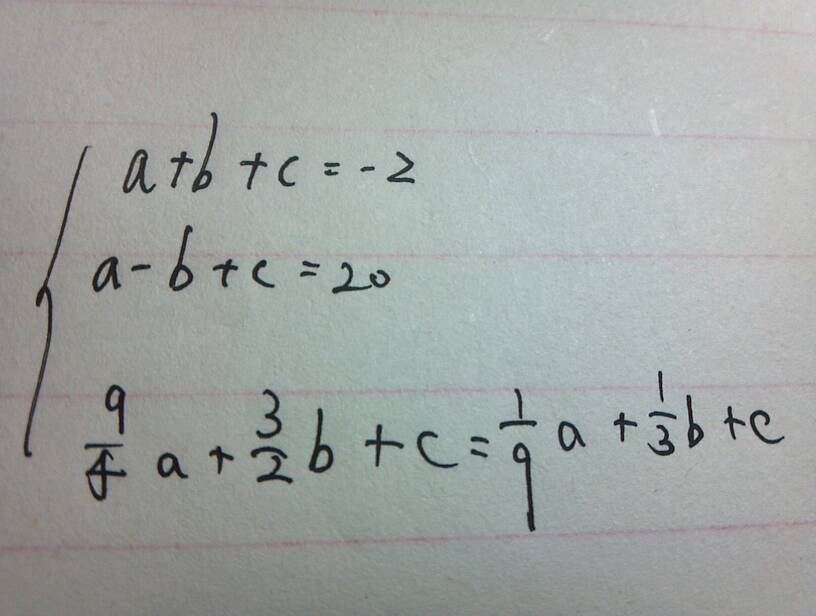 a+b+c=-2
a-b+c=20
9/4 a+3/2 b+c=1/9 a+1/3 b+c